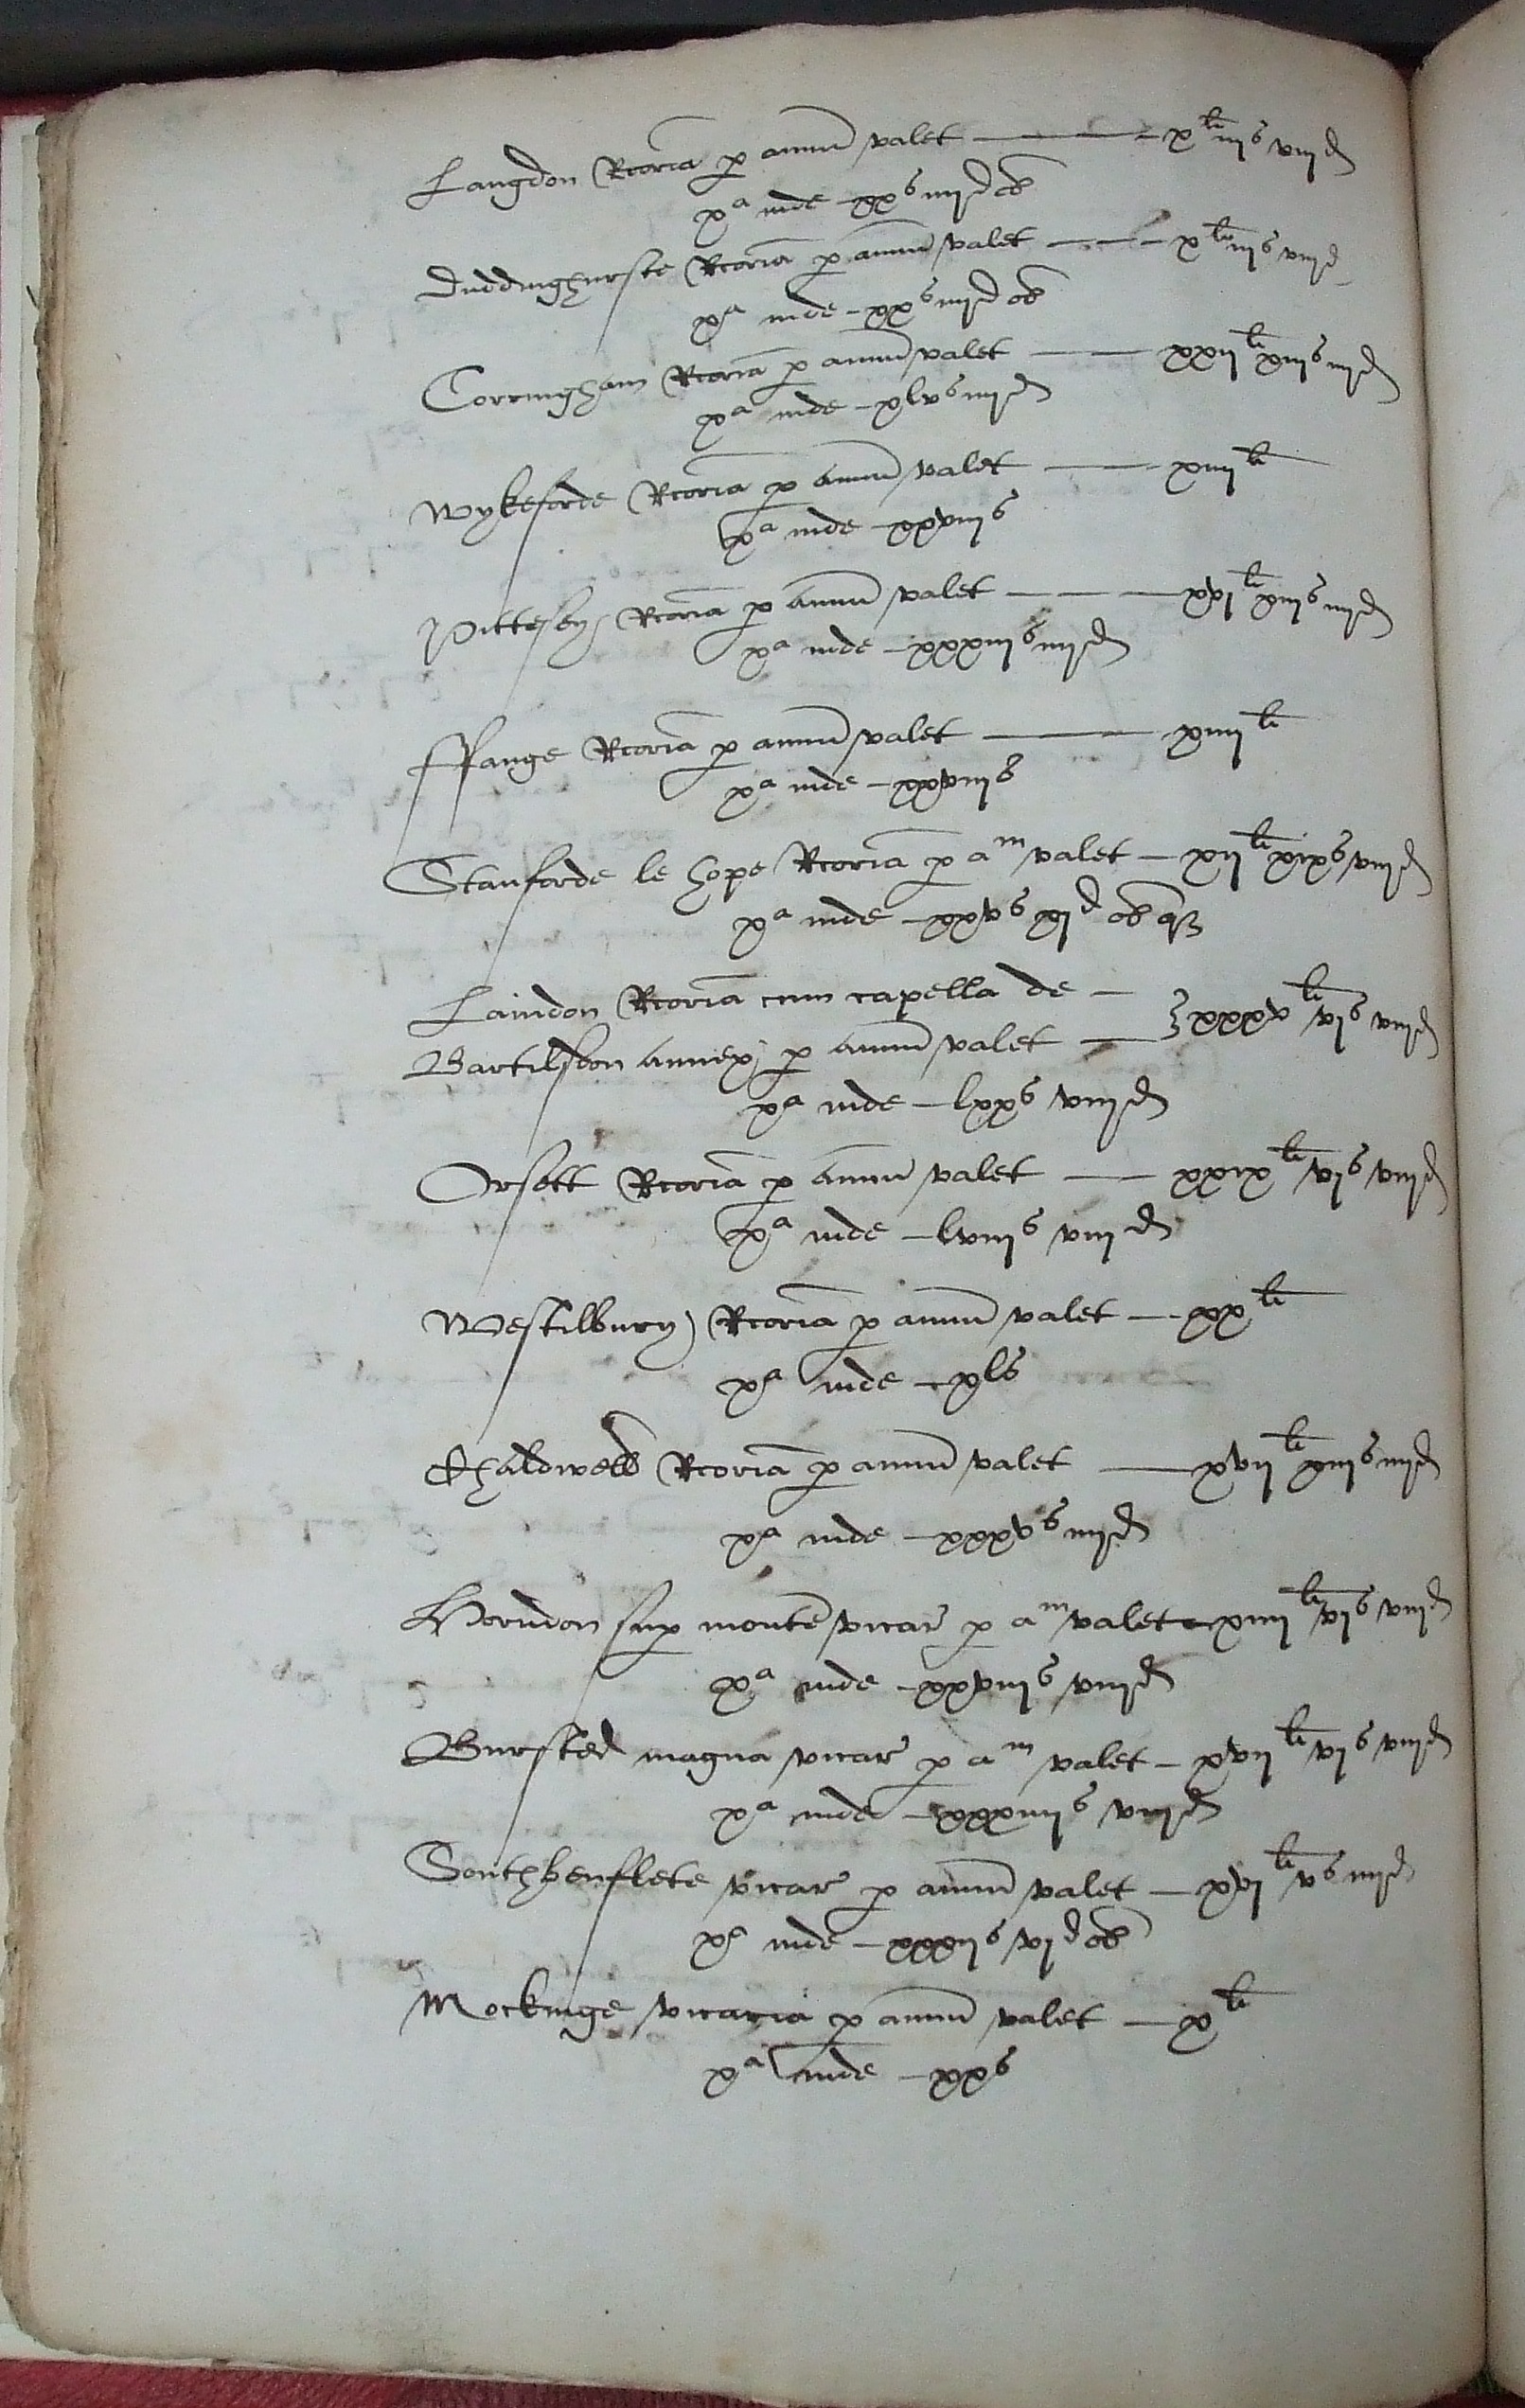 Langdon Rcoria p annū valet — x^li iiij^s viij^d
x^a inde — xx^s iiij^d ob
Duddinghurste Rcoria p annū valet — x^li iij^s viij^d
x^a inde — xx^s iiij^d ob
Corringham Rcoria p annū valet — xxij^li xiij^s iiij^d
x^a inde — xlv^s iiij^d
Wykeforde Rcoria p annū valet — xiiij^li
x^a inde — xxviij^s
Pittesey Rcoria p annū valet — xvj^li xiij^s iiij^d
x^a inde — xxxiij^s iiij^d
ffange Rcoria p annū valet — xiiij^li
x^a inde — xxviij^s
Stanforde le hope Rcoria p a^m valet — xij^li xix^s viij^d
x^a inde — xxv^s xj^d ob qz
Laindon Rcoria cum capella de —
Bartilsdon annex p annū valet — xxxv^li vj^s viij^d
x^a inde — lxx^s viij^d
Orsett Rcoria p annū valet — xxix^li vj^s viij^d
x^a inde — lviij^s viij^d
Westilbury Rcoria p annū valet — xx^li
x^a inde — xl^s
Chaldwell Rcoria p annū valet — xvij^li xiij^s iiij^d
x^a inde — xxxv^s iiij^d
Horndon sup montē vicar p a^m valet — xiiij^li vj^s viij^d
x^a inde — xxviij^s viij^d
Bursted magna vicar p a^m valet — xvij^li vj^s viij^d
x^a inde — xxxiiij^s viij^d
Southbenflete vicar p annū valet — xvj^li v^s iiij^d
x^a inde — xxxij^s vj^d ob
Mockinge vicaria p annū valet — x^li
x^a inde — xx^s